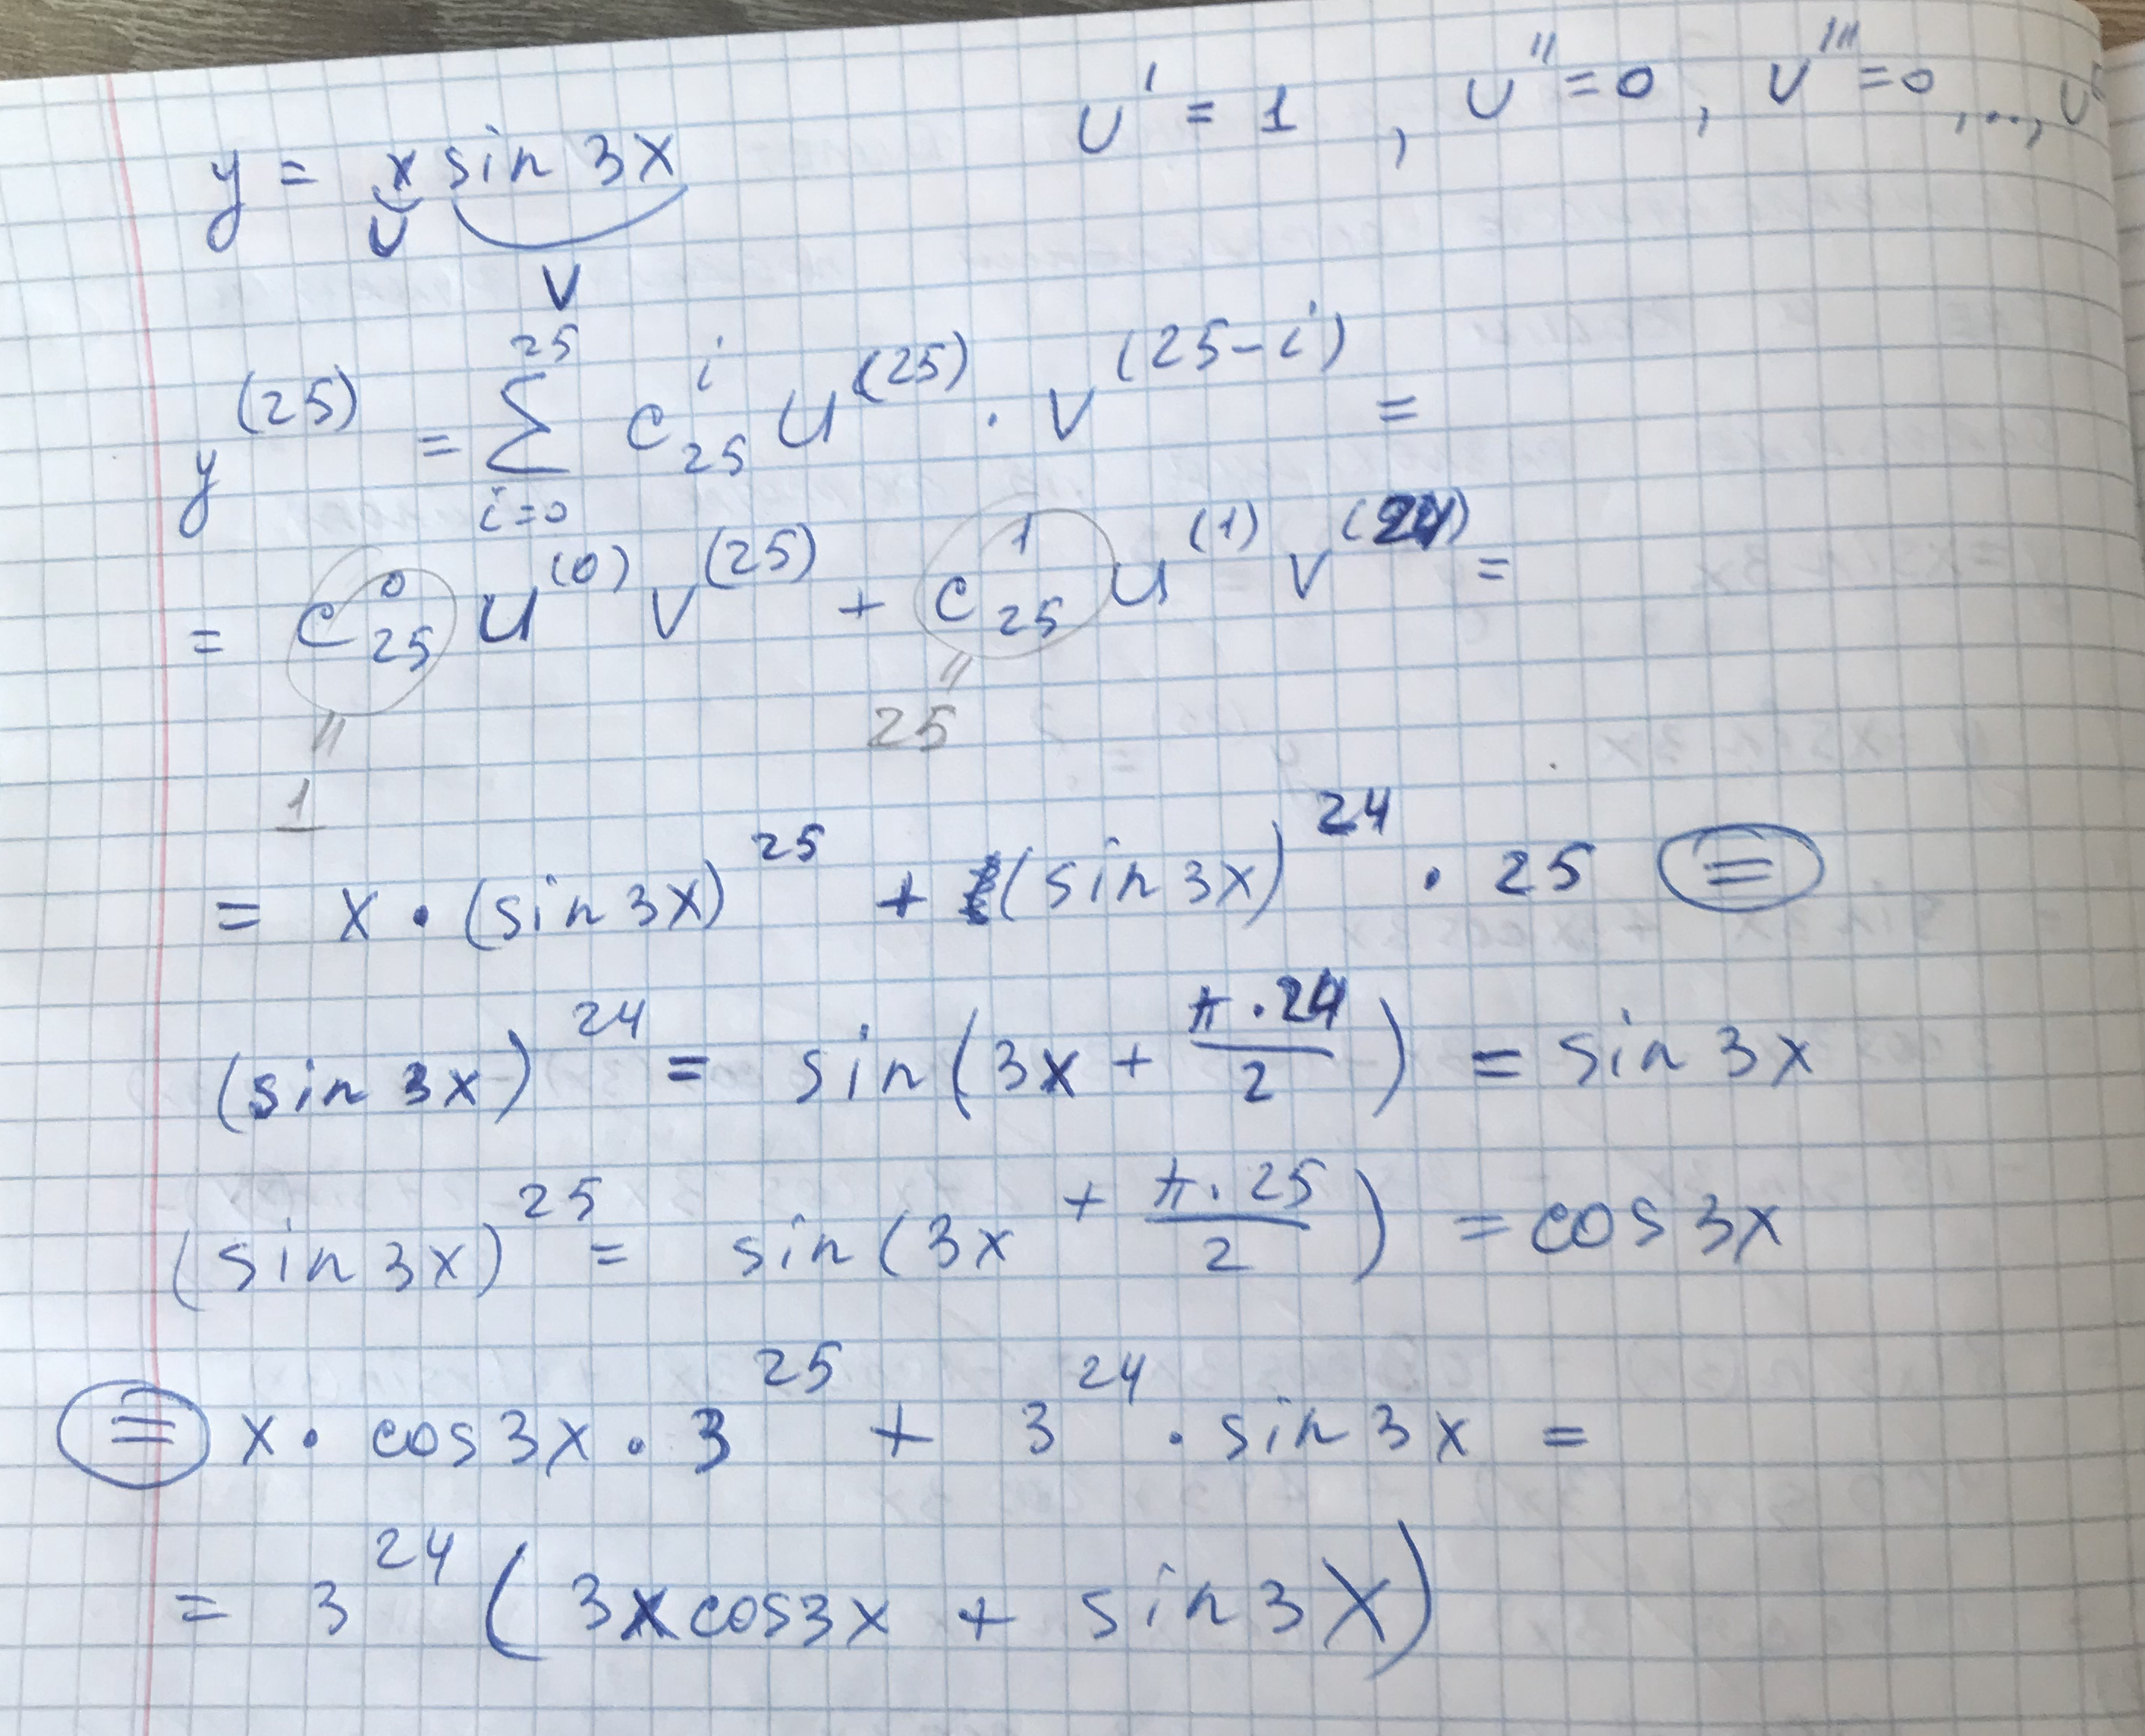 y = x sin 3x
U V
U' = 1 , U'' = 0 , U''' = 0 , ..., U
y^(25) = ∑_{i=0}^{25} C_25^i U^(25) · V^(25-i) =
= C_25^0 U^(0) V^(25) + C_25^1 U^(1) V^(24) =
" "
1 25
= x · (sin 3x)^25 + (sin 3x)^24 · 25 =
(sin 3x)^24 = sin(3x + π·24/2) = sin 3x
(sin 3x)^25 = sin(3x + π·25/2) = cos 3x
= x · cos 3x · 3^25 + 3^24 · sin 3x =
= 3^24 (3x cos 3x + sin 3x)